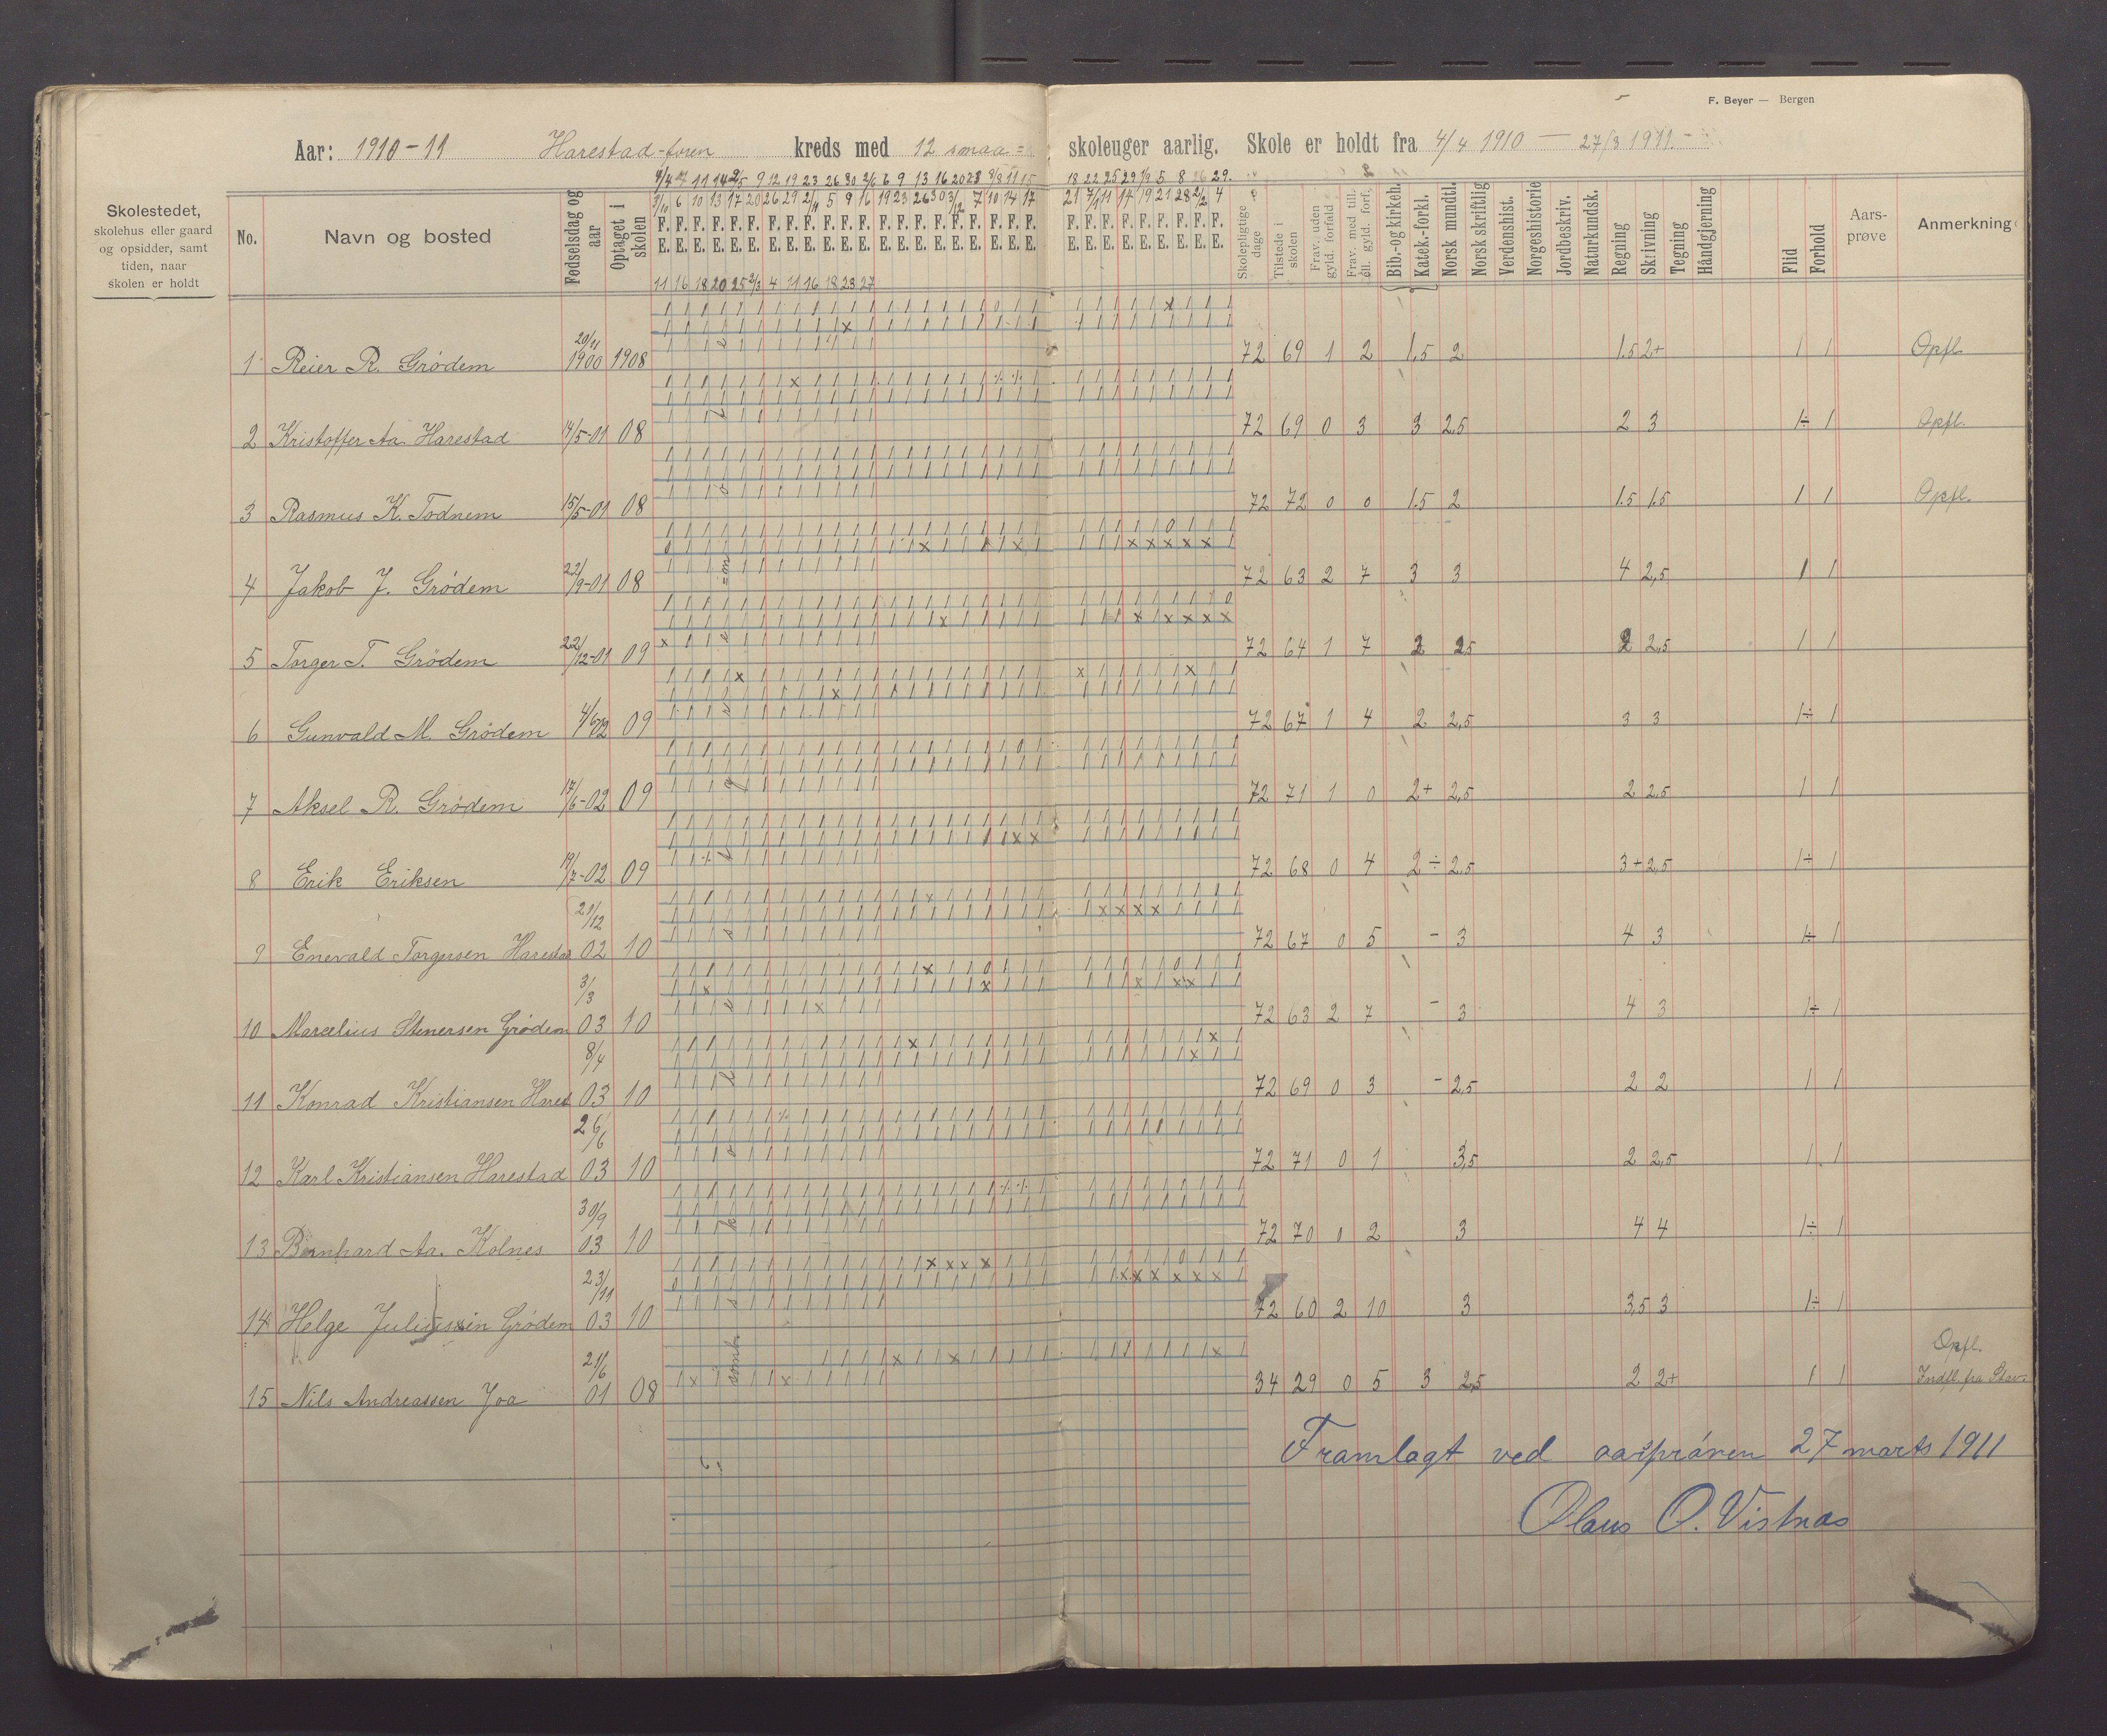 F. Beyer — Bergen
Aar: 1910-11 Harestad-foren kreds med 12 smaa= skoleuger aarlig. Skole er holdt fra 4/4 1910 — 27/3 1911.-
Skolestedet,
skolehus eller gaard
og opsidder, samt
tiden, naar
skolen er holdt
No. Navn og bosted Fødselsdag og aar Optaget i skolen Skolepligtige dage Tilstede i skolen Frav. uden gyld. forfald Frav. med till. ell. gyld. forf. Bib.- og kirkeh. Katek.-forkl. Norsk mundtl. Norsk skriftlig Verdenshist. Norgeshistorie Jordbeskriv. Naturkundsk. Regning Skrivning Tegning Håndgjerning Flid Forhold Aars-prøve Anmerkning
4/4 7 11 14 2/5 9 12 19 23 26 30 2/6 6 9 13 16 20 23 8/8 11 15 18 22 25 29 1/9 5 8 26 29.
3/10 6 10 13 17 20 26 29 2/11 5 9 16 19 23 26 30 3/12 7 10 14 17 21 7/1 11 14 19 21 28 2/2 4
F. F. F. F. F. F. F. F. F. F. F. F. F. F. F. F. F. F. F. F. F. F. F. F. F. F. F. F. F. F.
E. E. E. E. E. E. E. E. E. E. E. E. E. E. E. E. E. E. E. E. E. E. E. E. E. E. E. E. E. E.
11 16 18 20 25 2/3 4 11 16 18 23 27
1 Reier R. Grödem 20/11 1900 1908 72 69 1 2 1,5 2 1.5 2+ 1 1 Opfl.
2 Kristoffer Aa. Harestad 14/5-01 08 72 69 0 3 3 2.5 2 3 1÷ 1 Opfl.
3 Rasmus K. Todnem 15/5-01 08 72 72 0 0 1.5 2 1.5 1.5 1 1 Opfl.
4 Jakob J. Grödem 22/9-01 08 72 63 2 7 3 3 4 2,5 1 1
5 Torger T. Grödem 22/12-01 09 72 64 1 7 2 25 2 2,5 1 1
6 Gunvald M. Grödem 4/6 02 09 72 67 1 4 2 2,5 3 3 1÷ 1
7 Aksel R. Grödem 17/6-02 09 72 71 1 0 2+ 2,5 2 2.5 1 1
8 Erik Eriksen 19/7-02 09 72 68 0 4 2÷ 2.5 3+ 2,5 1÷ 1
9 Enevald Torgersen Harestad 21/12 02 10 72 67 0 5 - 3 4 3 1÷ 1
10 Marcelius Stenersen Grödem 3/3 03 10 72 63 2 7 - 3 4 3 1÷ 1
11 Konrad Kristiansen Harest 8/4 03 10 72 69 0 3 - 2,5 2 2 1 1
12 Karl Kristiansen Harestad 26/6 03 10 72 71 0 1 3,5 2 2,5 1 1
13 Bernhard Aa. Kolnes 30/9 03 10 72 70 0 2 3 4 4 1÷ 1
14 Helge Juliussin Grödem 23/11 03 10 72 60 2 10 3 3,5 3 1÷ 1
15 Nils Andreassen Joa 21/6 01 08 34 29 0 5 3 2,5 2 2+ 1 1 Opfl.
Indfl. fra Stav.
Framlagt ved aarspröven 27 marts 1911
Olaus O. Vistnæs